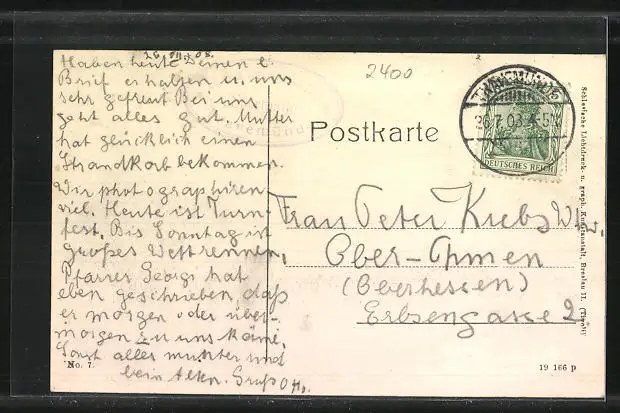 Haben heute Deinen l.
Brief erhalten u. uns
sehr gefreut Bei uns
geht alles gut. Mutter
hat glücklich einen
Strandkorb bekommen.
Wir photographiren
viel. Heute ist Turn-
fest. Bis Sonntag ist
großes Wettrennen.
Pfarrer Georgi hat
eben geschrieben, daß
er morgen oder über-
morgen zu uns käme.
Sonst alles munter und
beim Alten. Gruß
No. 7.
2400
Postkarte
26.7.03.4-5N
DEUTSCHES REICH
Frau Peter Krebs Wwe.
Ober-Ohmen
(Oberhessen)
Erbsengasse 2
Schlesische Lichtdruck- u. graph. Kunstanstalt, Breslau II.
19 166 p